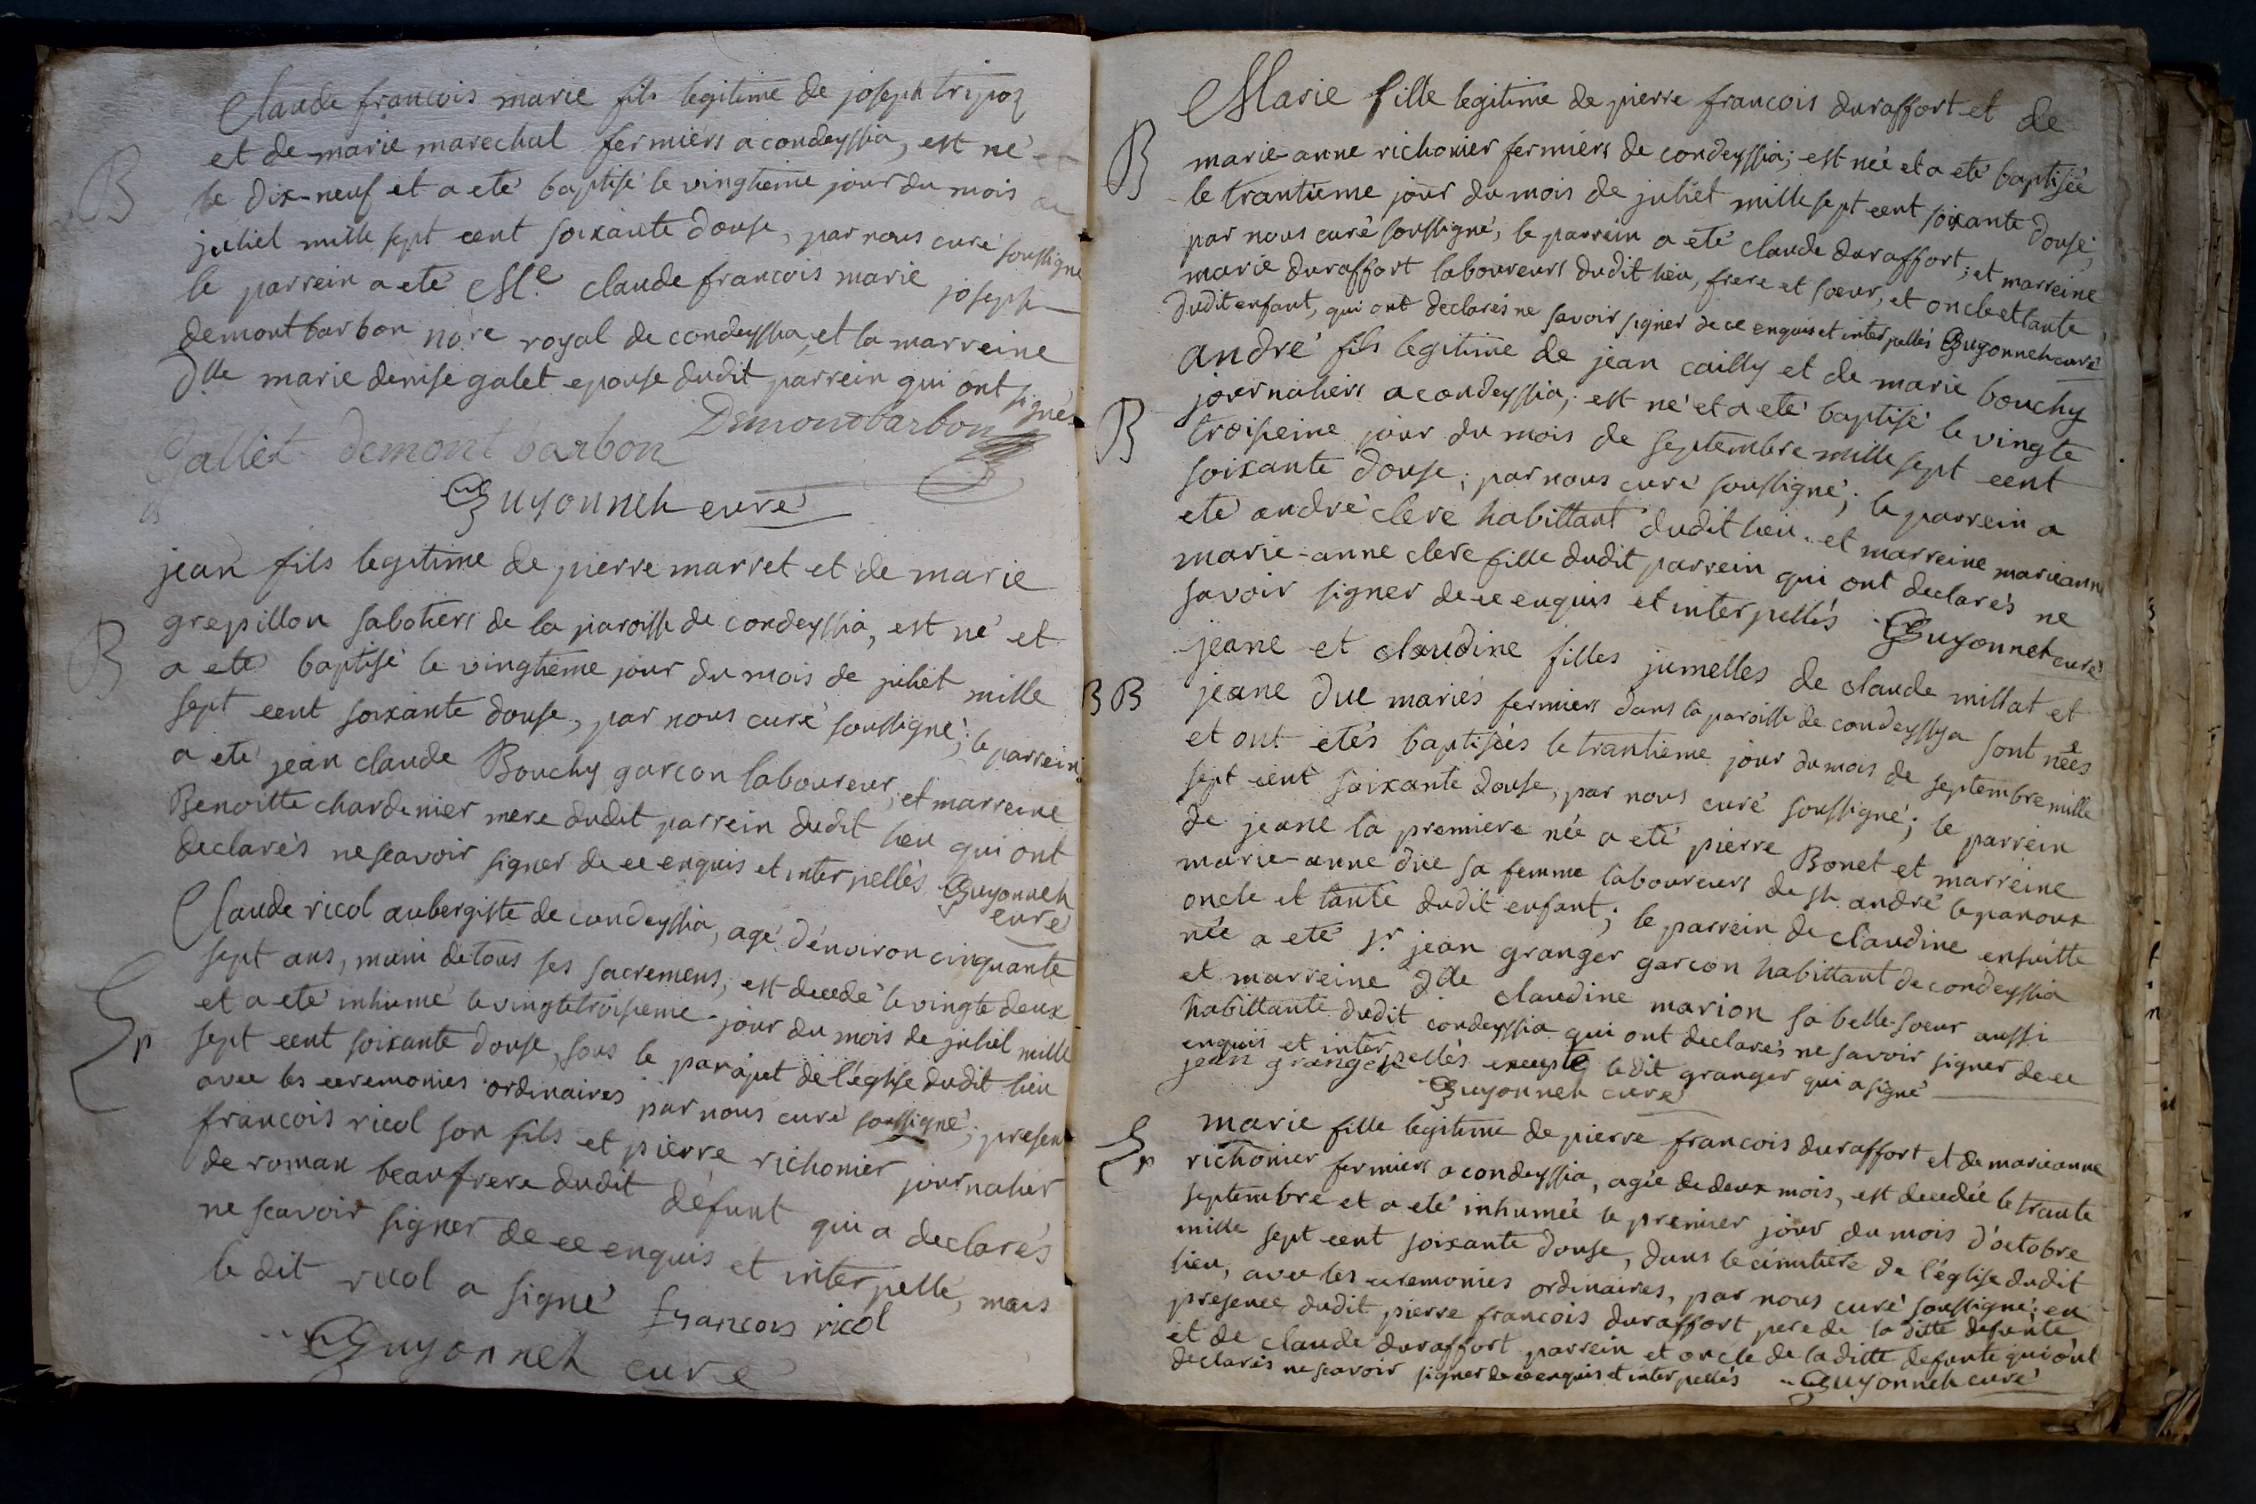 Claude francois marie fils legitime de joseph tripoz
et de marie marechal fermiers a condeyssia, est né et
B
le dix-neuf et a eté baptisé le vingtieme jour du mois de
juliet mille sept cent soixante douse, par nous curé soussigné
le parrein a eté Me. claude francois marie joseph
demontbarbon nore royal de condeyssia, et la marreine
dlle marie denise galet epouse dudit parrein qui ont signés
gallet demontbarbon Demontbarbon
Guyonneh curé
jean fils legitime de pierre marret et de marie
grepillon sabotiers de la paroisse de condeyssia, est né et
B
a eté baptisé le vingtieme jour du mois de juliet mille
sept cent soixante douse, par nous curé soussigné; le parrein
a eté jean claude Bouchy garcon laboureur, et marreine
Benoitte chardenier mere dudit parrein dudit lieu qui ont
declarés ne scavoir signer de ce enquis et interpellés Guyonneh
curé
Claude ricol aubergiste de condeyssia, agé d'environ cinquante
sept ans, muni de tous ses sacremens, est decedé le vingte deux
et a eté inhumé le vingtetroisieme jour du mois de juliet mille
Sp
sept cent soixante douse, sous le parapet de l'églisse dudit lieu
avec les ceremonies ordinaires par nous curé soussigné; presens
francois ricol son fils et pierre richonier journalier
de roman beaufrere dudit défunt qui a declarés
ne scavoir signer de ce enquis et interpellé, mais
le dit ricol a signé francois ricol
Guyonneh curé
Marie fille legitime de pierre francois duraffort et de
B
marie-anne richonier fermiérs de condeyssia; est née et a eté baptisée
le trantieme jour du mois de juliet mille sept cent soixante douse;
par nous curé soussigné, le parrein a eté claude duraffort; et marreine
marie duraffort laboureurs dudit lieu, frere et sœur, et oncle et tante
dudit enfant, qui ont declarés ne savoir signer de ce enquis et interpellés Guyonneh curé
andré fils legitime de jean cailly et de marie bouchy
journaliers a condeyssia; est né et a eté baptisé le vingte
B
troisieine jour du mois de septembre mille sept cent
soixante douse; par nous curé soussigné; le parrein a
eté andré clere habittant dudit lieu et marreine marieanne
marie-anne clere fille dudit parrein qui ont declarés ne
savoir signer de ce enquis et interpellés Guyonneh curé
jeane et claudine filles jumelles de claude millat et
BB
jeane duc mariés fermiers dans la paroisse de condeyssya sont neés
et ont etés baptisées le trantieme jour du mois de septembre mille
sept cent soixante douse, par nous curé soussigné; le parrein
de jeane la premiere née a eté pierre Bonet et marreine
marie-anne duc sa femme laboureurs de st. andré le panoux
oncle et tante dudit enfant; le parrein de claudine ensuitte
née a eté sr. jean granger garcon habittant de condeyssia
et marreine dlle claudine marion sa belle-soeur aussi
habittante dudit condeyssia qui ont declarés ne savoir signer de ce
enquis et interpellés excepté le dit granger qui a signé
jean granger
Guyonneh curé
marie fille legitime de pierre francois duraffort et de marieanne
Sp
richonier fermiers a condeyssia, agée de deux mois, est decedée le trante
septembre et a eté inhumée le premier jour du mois d'octobre
mille sept cent soixante douse, dans le cimitiere de l'église dudit
lieu, avec les ceremonies ordinaires, par nous curé soussigné; en
presence dudit pierre francois duraffort pere de la ditte defunte
et de claude duraffort parrein et oncle de la ditte defunte qui ont
declarés ne scavoir signer de ce enquis et interpellés Guyonneh curé